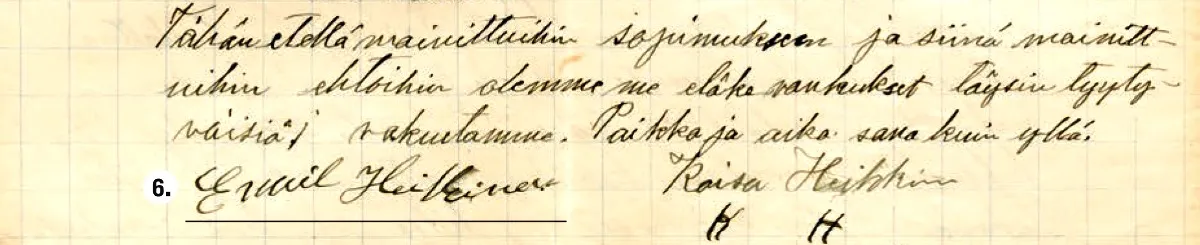 Tähän etellä mainittuihin sopimuksen ja siinä mainitt-
uihin ehtoihin olemme me eläke vanhukset täysin tyyty-
väisiä; vakuutamme. Paikka ja aika sama kuin yllä.
6. Emil Heikkinen Kaisa Heikkinen
K H